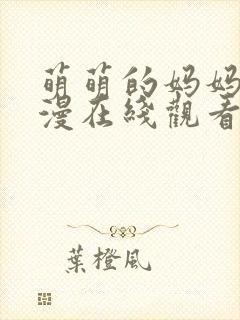 萌萌的妈妈
漫在綫觀看
葉橙風